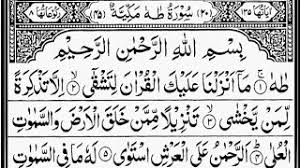 اٰيَاتُهَا ۱۳۵ (۲۰) سُوْرَةُ طٰهٰ مَكِّيَّةٌ (۴۵) رُكُوْعَاتُهَا
بِسْمِ اللّٰهِ الرَّحْمٰنِ الرَّحِيْمِ
طٰهٰ ۱ مَا اَنْزَلْنَا عَلَيْكَ الْقُرْاٰنَ لِتَشْقٰى ۲ اِلَّا تَذْكِرَةً
لِّمَنْ يَّخْشٰى ۳ تَنْزِيْلًا مِّمَّنْ خَلَقَ الْاَرْضَ وَالسَّمٰوٰتِ
الْعُلٰى ۴ اَلرَّحْمٰنُ عَلَى الْعَرْشِ اسْتَوٰى ۵ لَهٗ مَا فِى السَّمٰوٰتِ